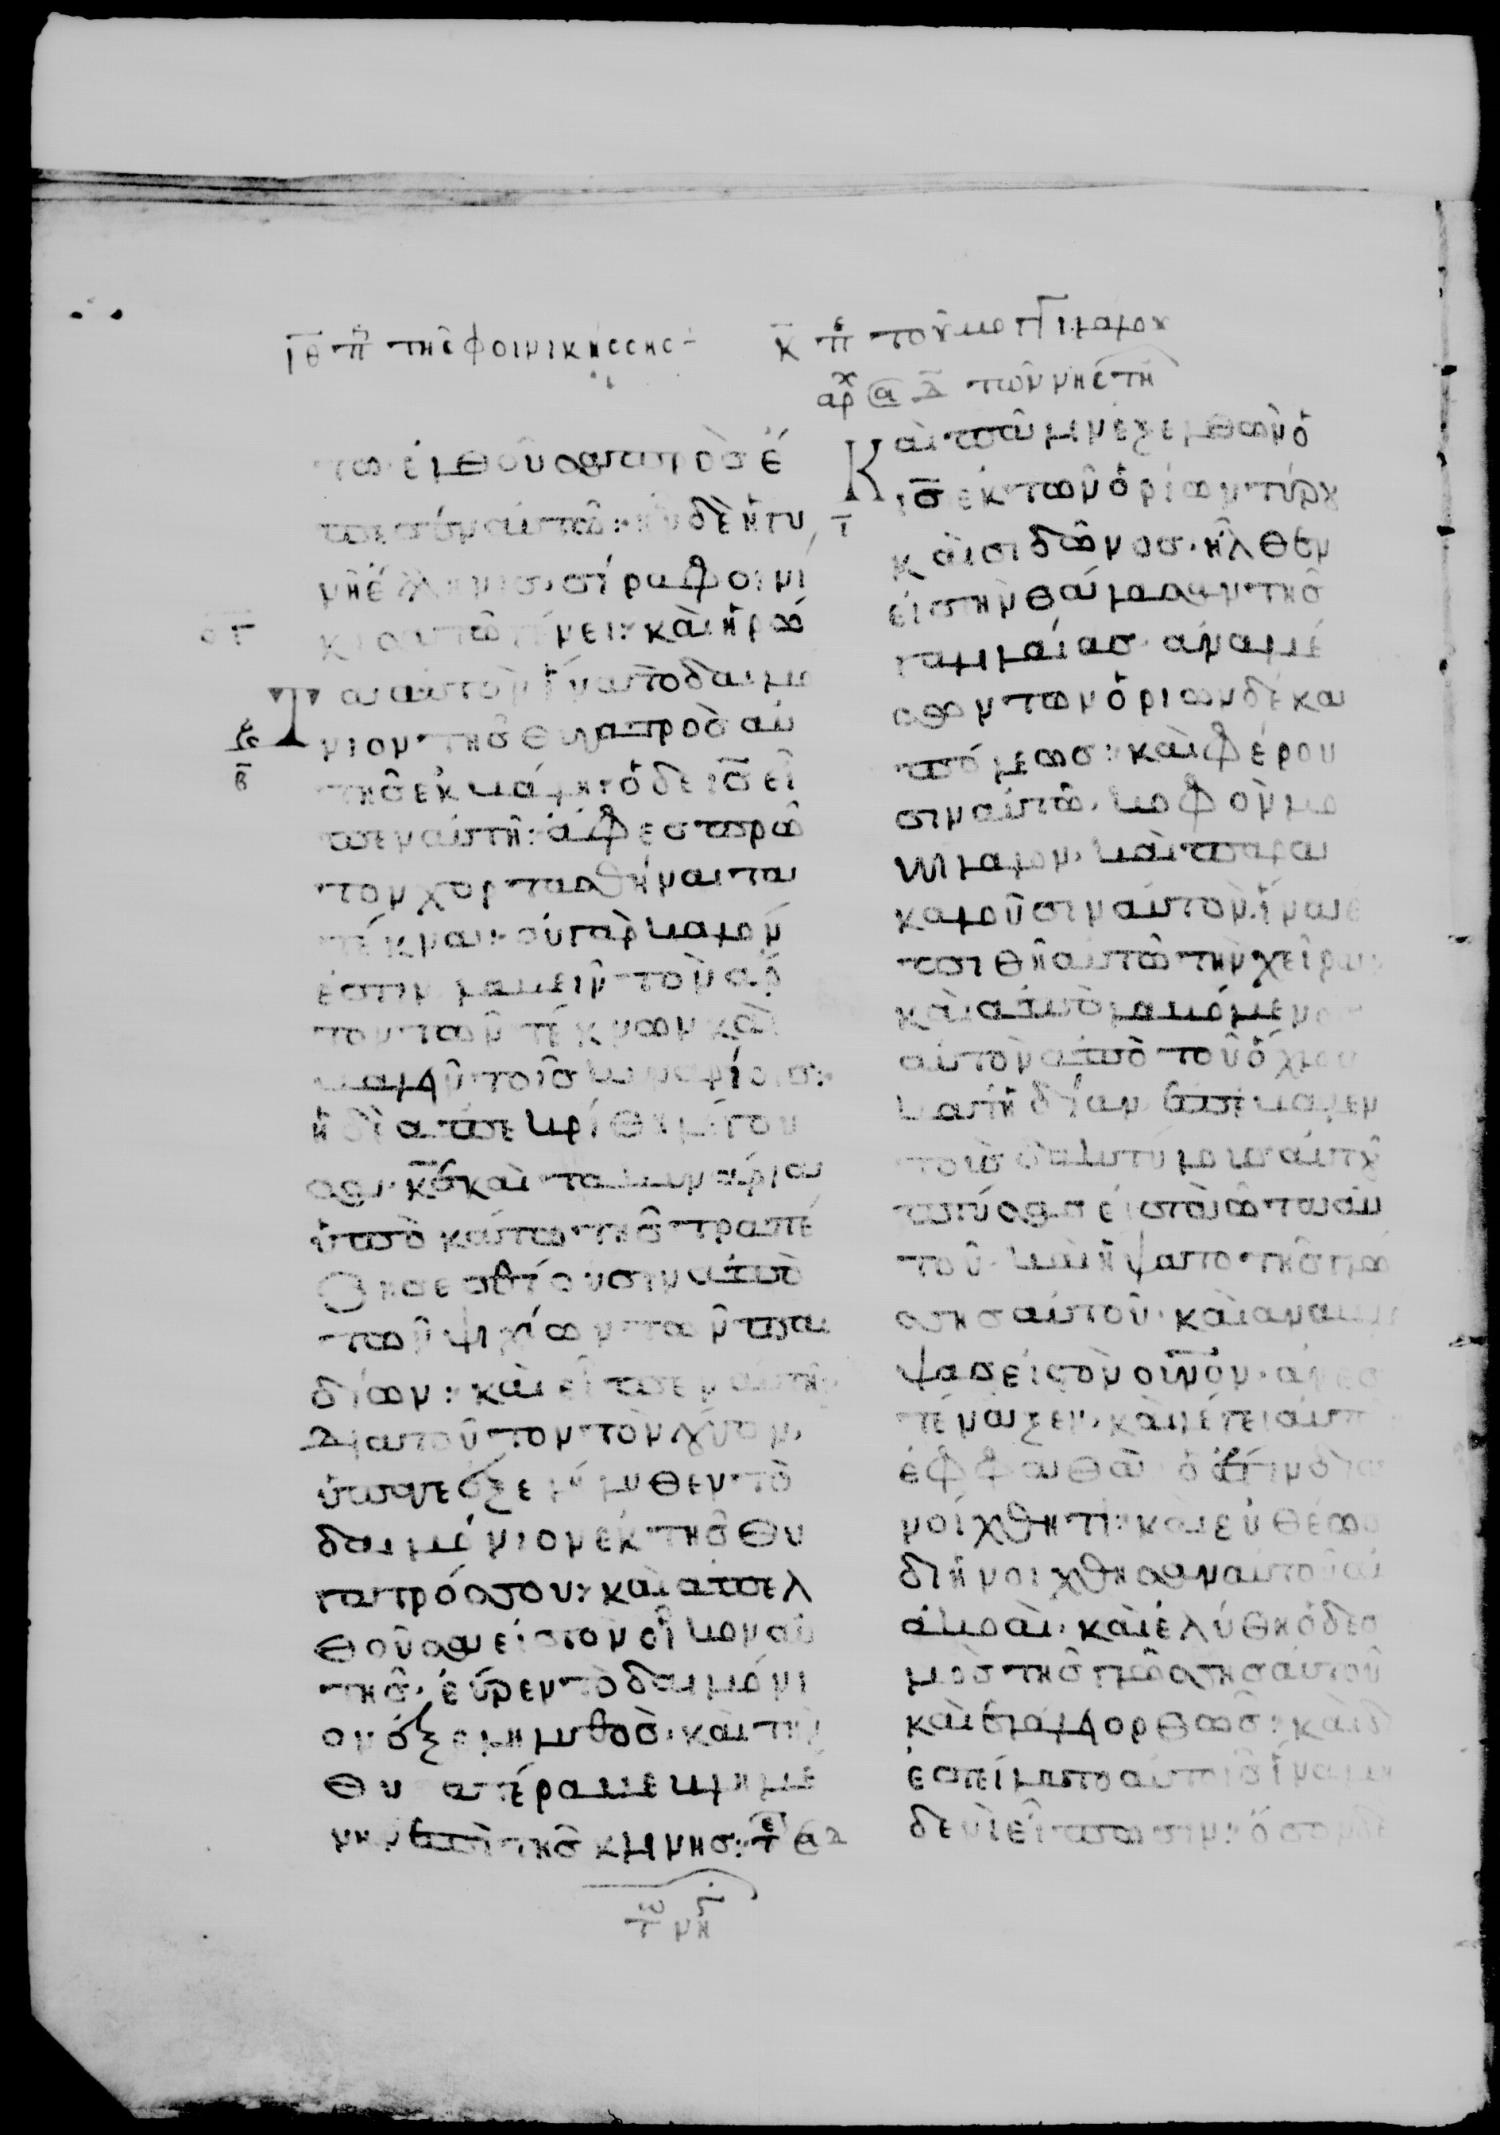 ιθ π τῆς φοινικήσσης
κ π τοῦ μογγιλάλου
αρχ
τω· ἐλθοῦσα προσέ
πεσεν αὐτῶ: ἡ δὲ ἦν γυ
νὴ ἑλληνισ· σύρα φοινί
κισσα τῶ γένει: καὶ ἠρώ
Τ αι αὐτὸν ἵνα τὸ δαιμό
νιον τῆσ θυγατρὸσ αὐ
τῆσ ἐκβάλη· ὁ δὲ ισ εἶ
πεν αὐτῆ: ἄφεσ πρῶ
τον χορτασθῆναι τα
τέκνα: οὐ γὰρ καλόν
ἐστιν λαβεῖν τὸν ἄρ
τον τῶν τέκνων καὶ
βαλεῖν τοῖσ κυναρίοισ:
ἡ δὲ ἀπεκρίθη λέγου
σα· κε καὶ τα κυνάρια
ὑπὸ κάτω τῆσ τραπέ
ζησ ἐσθίουσιν ἀπὸ
τῶν ψιχίων τῶν παι
δίων: καὶ εἶπεν αὐτῆ
Διατοῦτον τὸν λόγον
ὕπαγε ἐξελήλυθεν τὸ
δαιμόνιον ἐκ τῆσ θυ
γατρόσ σου: καὶ ἀπελ
θοῦσα εἰσ τὸν οἶκον αὐ
τῆσ· εὗρεν τὸ δαιμόνι
ον ἐξεληλυθὸσ· καὶ τὴν
θυγατέρα βεβλημέ
νην ἐπὶ τῆσ κλίνησ:
Και πάλιν ἐξελθὼν ὁ
ισ ἐκ τῶν ὁρίων τύρου
καὶ σιδῶνοσ· ἦλθεν
εἰσ τὴν θάλασσαν τῆσ
γαλιλαίασ· ἀνα μέ
σον τῶν ὁρίων δεκα
πόλεωσ: καὶ φέρου
σιν αὐτῶ· κωφὸν μο
γγιλάλον· καὶ παρα
καλοῦσιν αὐτὸν· ἵνα ἐ
πιθῆ αὐτῶ τὴν χεῖρα
καὶ ἀπολαβόμενοσ
αὐτὸν ἀπὸ τοῦ ὄχλου
κατ ἰδίαν ἐπέβαλεν
τοὺσ δακτύλουσ αὐτοῦ
πτύσασ εἰσ τὰ ὦτα αὐ
τοῦ· καὶ ἥψατο τῆσ γλώ
σσησ αὐτοῦ· καὶ ἀναβλέ
ψασ εἰσ τὸν οὐνὸν· ἀνεσ
τέναξεν· καὶ λέγει αὐτῶ
ἐφφαθὰ ὅ ἐστιν δια
νοίχθητι: καὶ εὐθέωσ
διηνοίχθησαν αὐτοῦ αἱ
ἀκοαὶ· καὶ ἐλύθη ὁ δεσ
μὸσ τῆσ γλώσσησ αὐτοῦ
καὶ ἐλάλει ὀρθῶσ: καὶ δι
εστείλατο αὐτοῖσ ἵνα μη
δενὶ εἴπωσιν: ὅσον δὲ